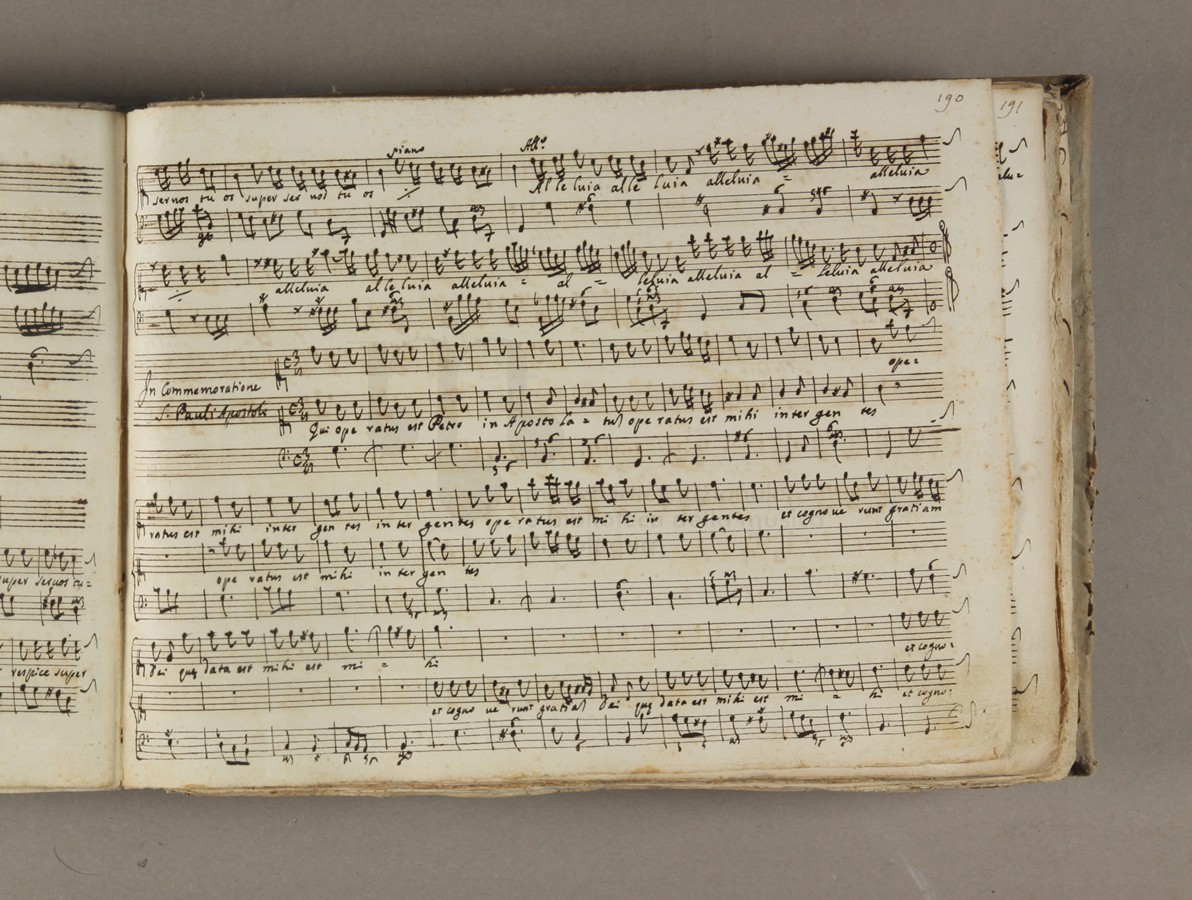 190 191
piano All.o
servos tu os super ser vos tu os Al le luia alle luia alleluia = alleluia
alleluia alle luia alleluia = al = leluia alleluia al = leluia alleluia
ope=
In Commemoratione
S. Pauli Apostoli
Qui ope ratus est Petro in Aposto La = tus ope ratus est mihi inter gen tes
ratus est mihi inter gen tes inter gentes ope ratus est mi hi in ter gentes et cognove runt gratiam
super servos tu=
ope ratus est mihi in ter gen tes
respice super
Dei quę data est mihi est mi = hi et cogno=
et cogno ve runt gratia Dei quę data est mihi est mi = hi et cogno: